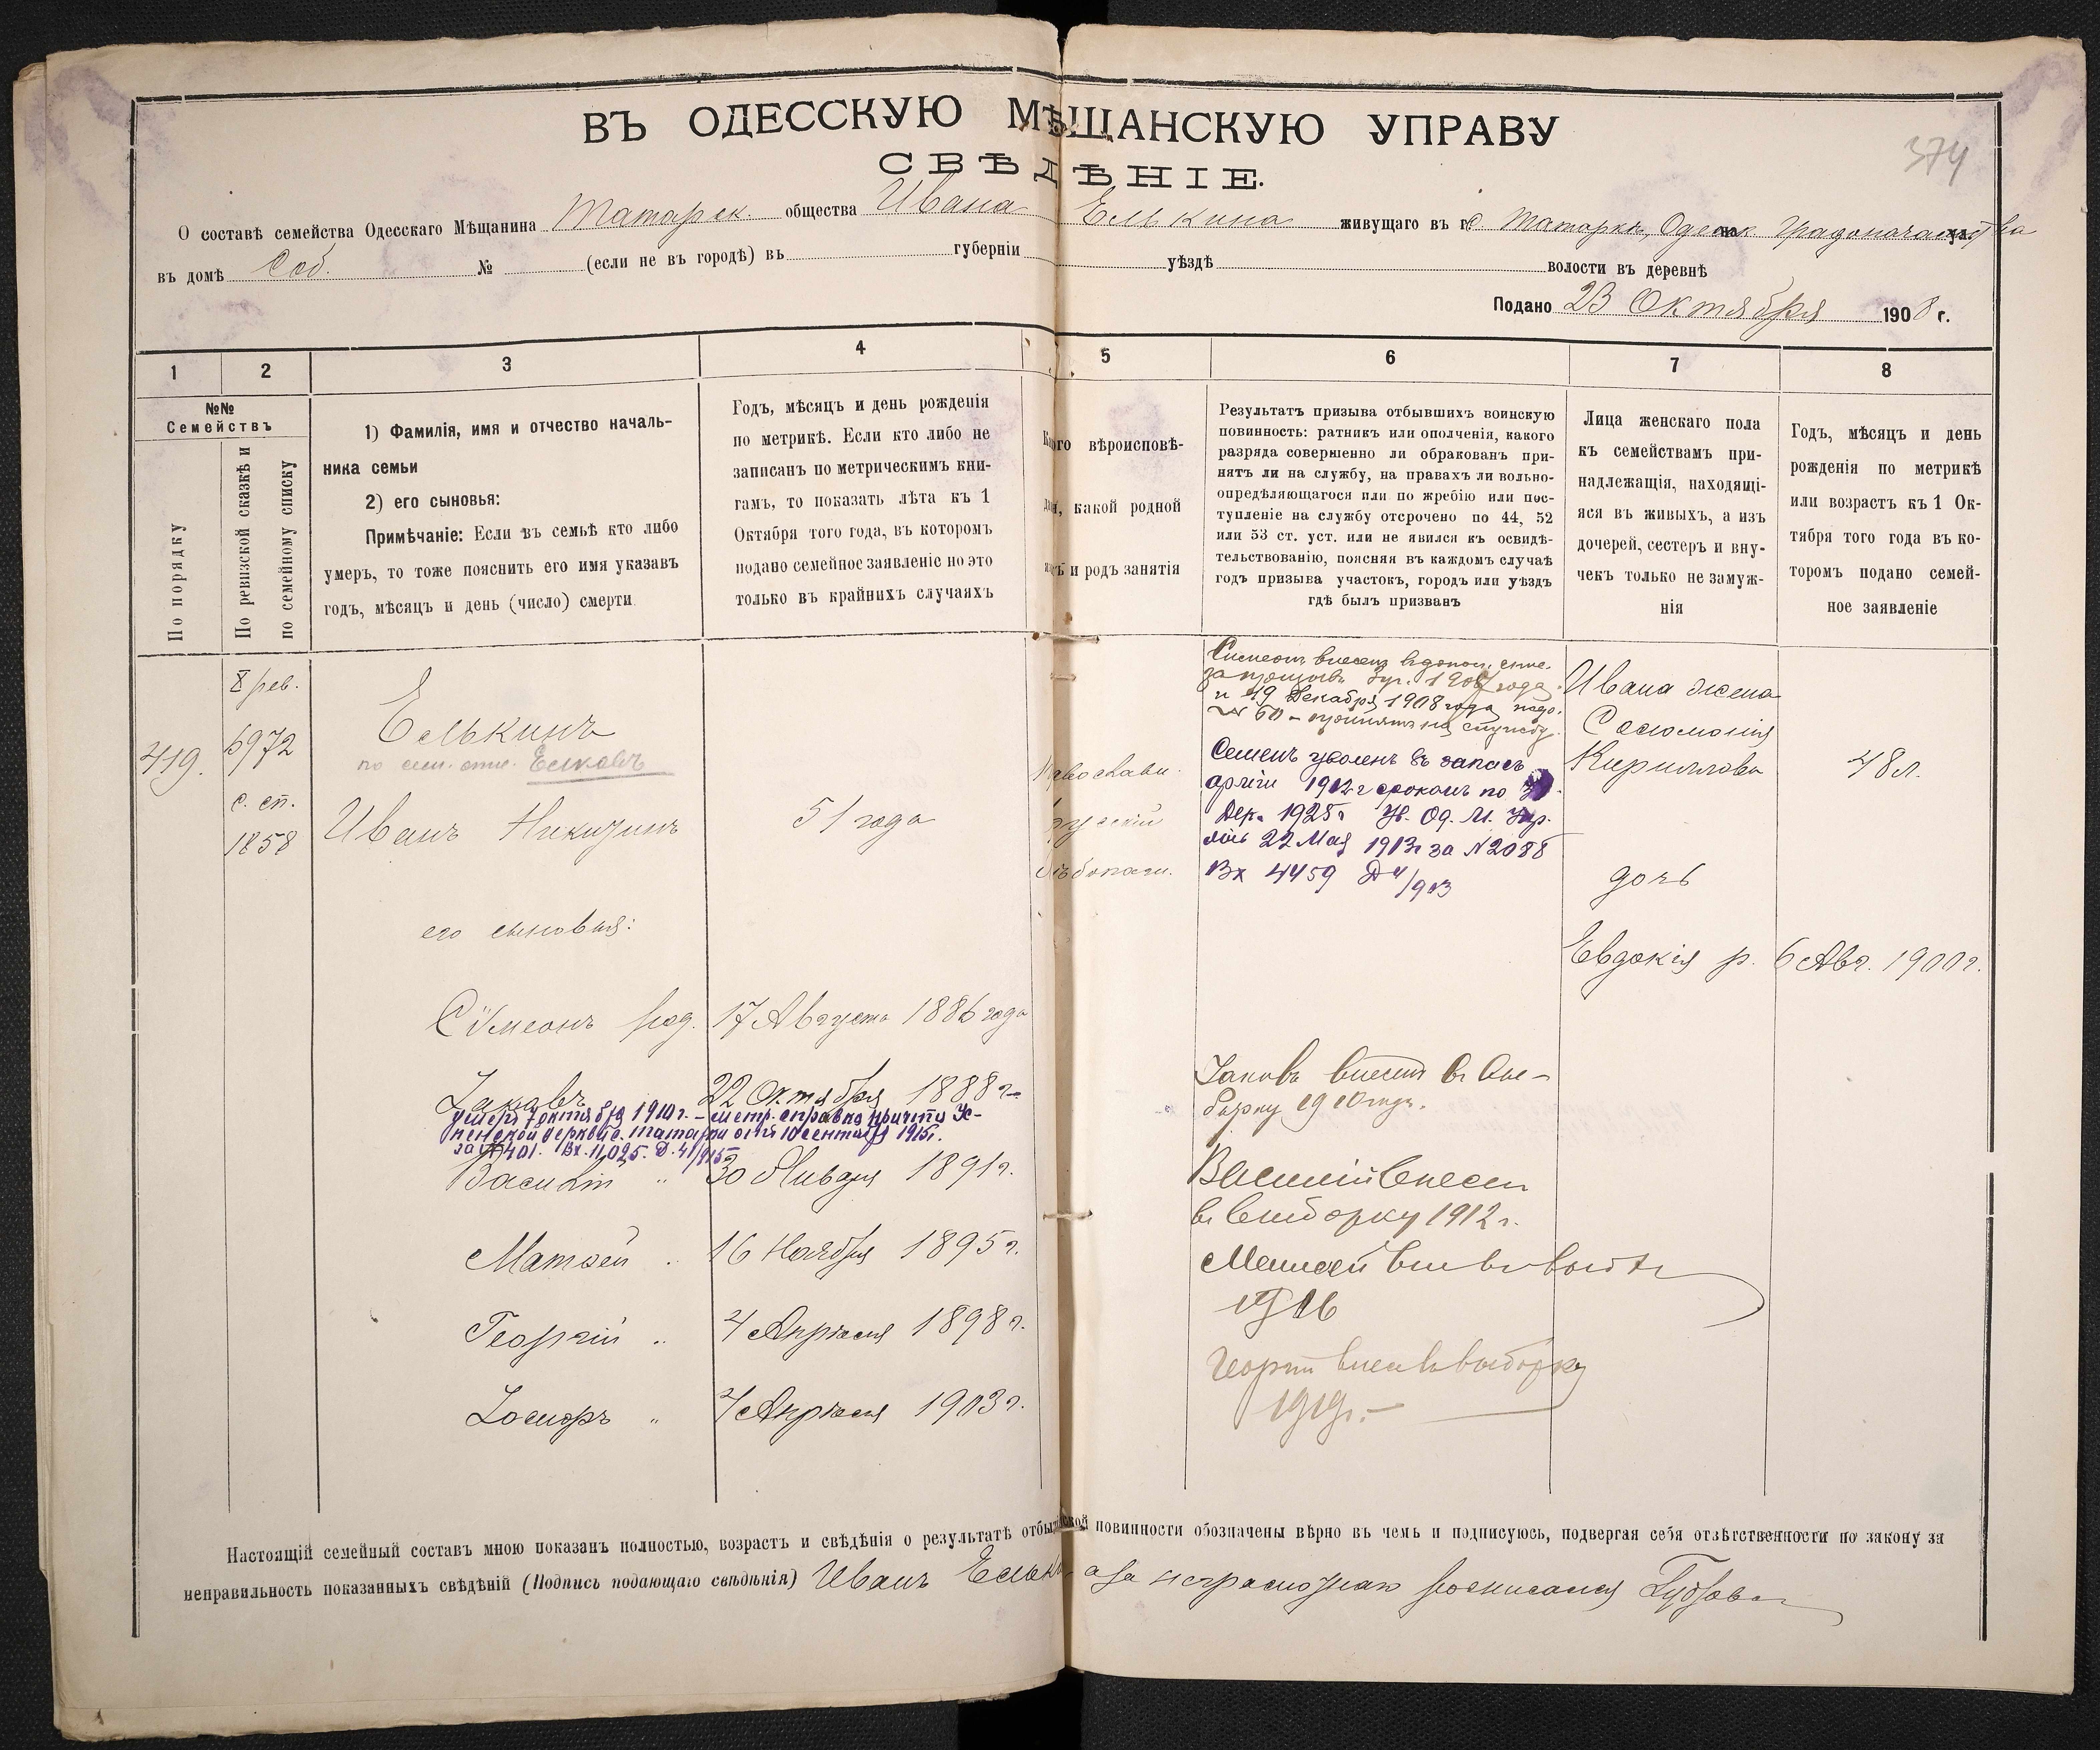 ВЪ ОДЕССКУЮ МѢЩАНСКУЮ УПРАВУ
СВѢДѢНІЕ.
374
О составѣ семейства Одесскаго Мѣщанина Татарск. общества Ивана Елькина живущаго въ с. Татаркѣ, Одесск Градоначальства
въ домѣ Соб. № (если не въ городѣ) въ губерніи уѣздѣ волости въ деревнѣ
Подано 23 Октября 1908 г.
1 2 3 4 5 6 7 8
№№
Семействъ
По порядку
По ревизской сказкѣ и
по семейному списку
1) Фамилія, имя и отчество началь-
ника семьи
2) его сыновья:
Примѣчаніе: Если въ семьѣ кто либо
умеръ, то тоже пояснить его имя указавъ
годъ, мѣсяцъ и день (число) смерти
Годъ, мѣсяцъ и день рожденія
по метрикѣ. Если кто либо не
записанъ по метрическимъ кни-
гамъ, то показать лѣта къ 1
Октября того года, въ которомъ
подано семейное заявленіе но это
только въ крайнихъ случаяхъ
вѣроисповѣ-
какой родной
и родъ занятія
Результатъ призыва отбывшихъ воинскую
повинность: ратникъ или ополченія, какого
разряда совершенно ли обракованъ при-
нятъ ли на службу, на правахъ ли вольно-
опредѣляющагося или по жребію или пос-
тупленіе на службу отсрочено по 44, 52
или 53 ст. уст. или не явился къ освидѣ-
тельствованію, поясняя въ каждомъ случаѣ
годъ призыва участокъ, городъ или уѣздъ
гдѣ былъ призванъ
Лица женскаго пола
къ семействамъ при-
надлежащія, находящі-
яся въ живыхъ, а изъ
дочерей, сестеръ и вну-
чекъ только не замуж-
нія
Годъ, мѣсяцъ и день
рожденія по метрикѣ
или возрастъ къ 1 Ок-
тября того года въ ко-
торомъ подано семей-
ное заявленіе
419.
X рев.
5972
с. сп.
1858
Елькинъ
по сем. спис. Елковъ
Иванъ Никитинъ
51 года
Православн.
русскій
хлѣбопаш.
Симеонъ внесенъ
1907 года
и 19 Декабря 1908 года
№ 60 – принятъ на службу.
Семенъ уволенъ въ запасъ
арміи 1912 г срокомъ по
Дек. 1925 г Ув. Од. М. Упр.
22 Мая 1913 г за № 2088
Вх 4459 Д 4/913
Ивана жена
Соломонія
Кириллова
48 л.
дочь
Евдокія р. 6 Авг. 1900 г.
его сыновья:
Сѵмеонъ род. 17 Августа 1886 года
Іаковъ 22 Октября 1888 г.
умеръ октября 1910 г. – метр. справка причта Ус-
пенской церкви с. Татарки отъ 10 сентяб 1915 г.
за № 401. Вх. 11,025. Д. 41/915
Іаковъ внесенъ въ вы-
борку 1910 года.
Василій „ 30 Января 1891 г.
Василій внесен
въ выборку 1912 г.
Матѳей „ 16 Ноября 1895 г.
Матѳей
1916
Георгій „ 4 Апрѣля 1898 г.
Георгій внесен въ выборку
1919 г. –
Іосифъ „ 4 Апрѣля 1903 г.
Настоящій семейный составъ мною показанъ полностью, возрастъ и свѣдѣнія о результатѣ повинности обозначены вѣрно въ чемъ и подписуюсь, подвергая себя отвѣтственности по закону за
неправильность показанныхъ свѣдѣній (Подпись подающаго свѣдѣнія) Иванъ Елькинъ а за неграмотнаго росписался